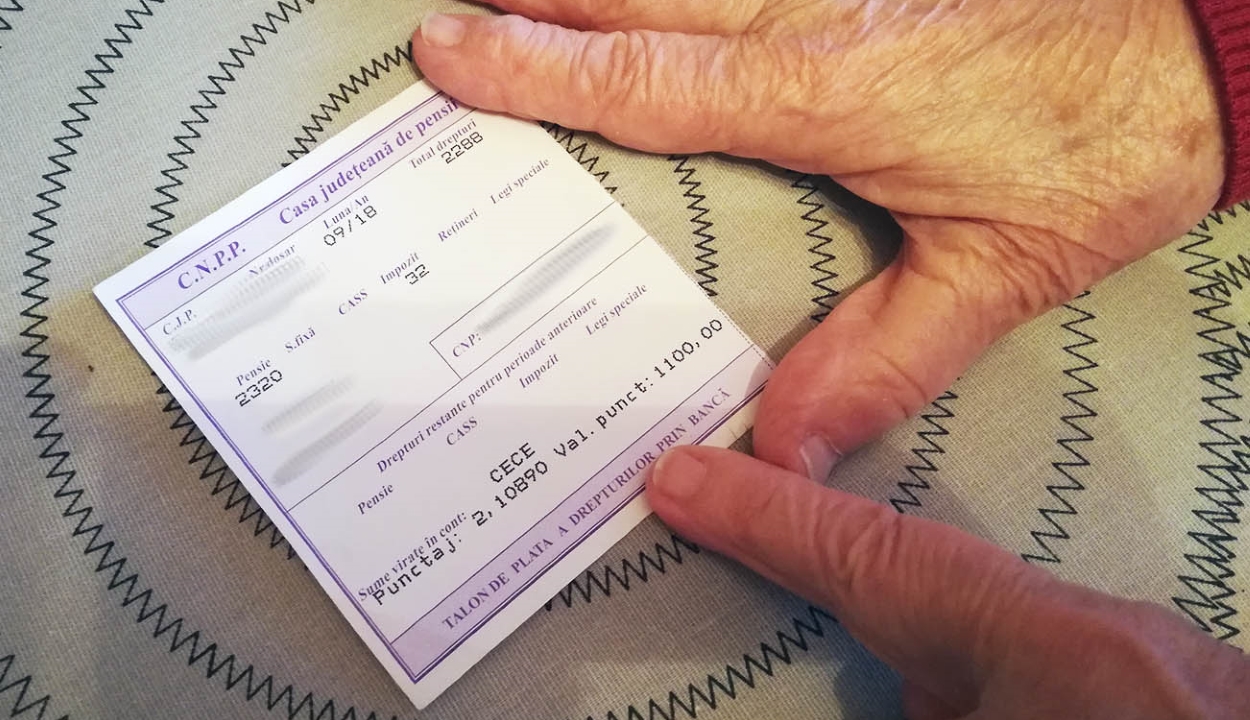 C.N.P.P. Casa județeană de pensii
C.J.P. Nr.dosar Luna/An Total drepturi
09/18 2288
Pensie S.fixă CASS Impozit Rețineri Legi speciale
2320 32
CNP:
Drepturi restante pentru perioade anterioare
Pensie CASS Impozit Legi speciale
Sume virate în cont: CECE
Punctaj: 2,10890 Val.punct:1100,00
TALON DE PLATA A DREPTURILOR PRIN BANCĂ